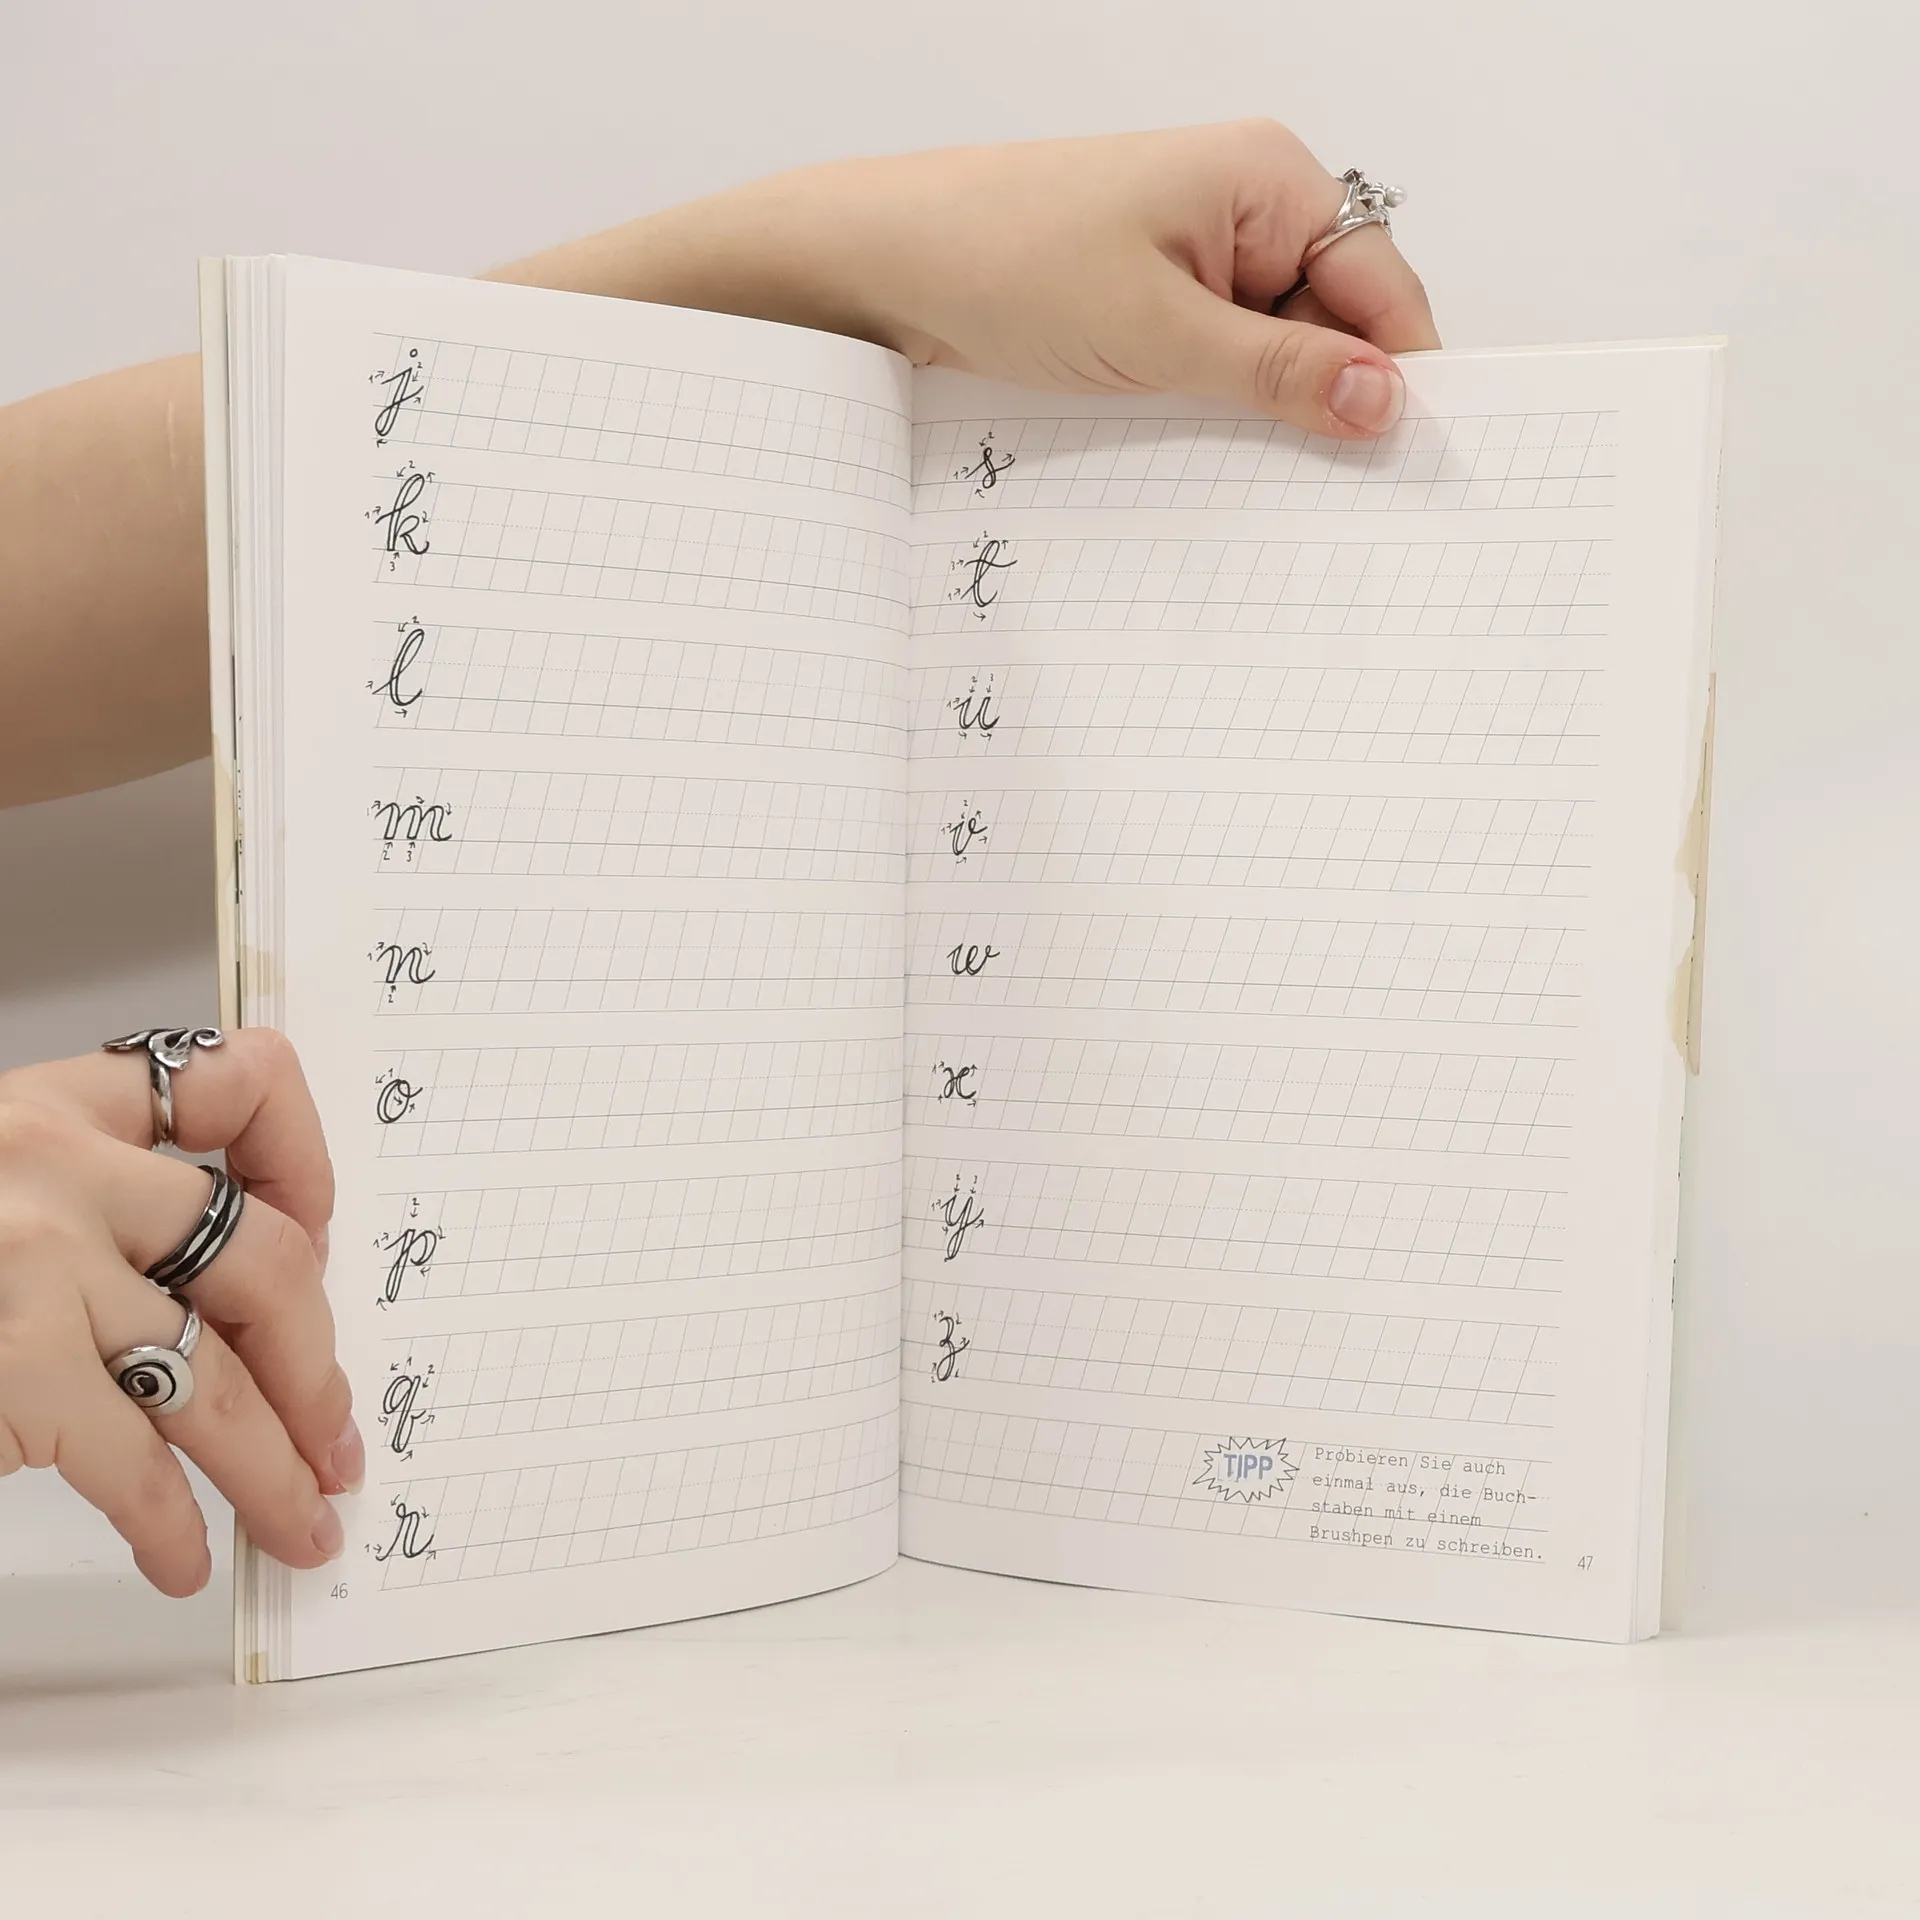 j
k
l
m
n
o
p
q
r
46
s
t
u
v
w
x
y
z
TIPP
Probieren Sie auch
einmal aus, die Buch-
staben mit einem
Brushpen zu schreiben.
47